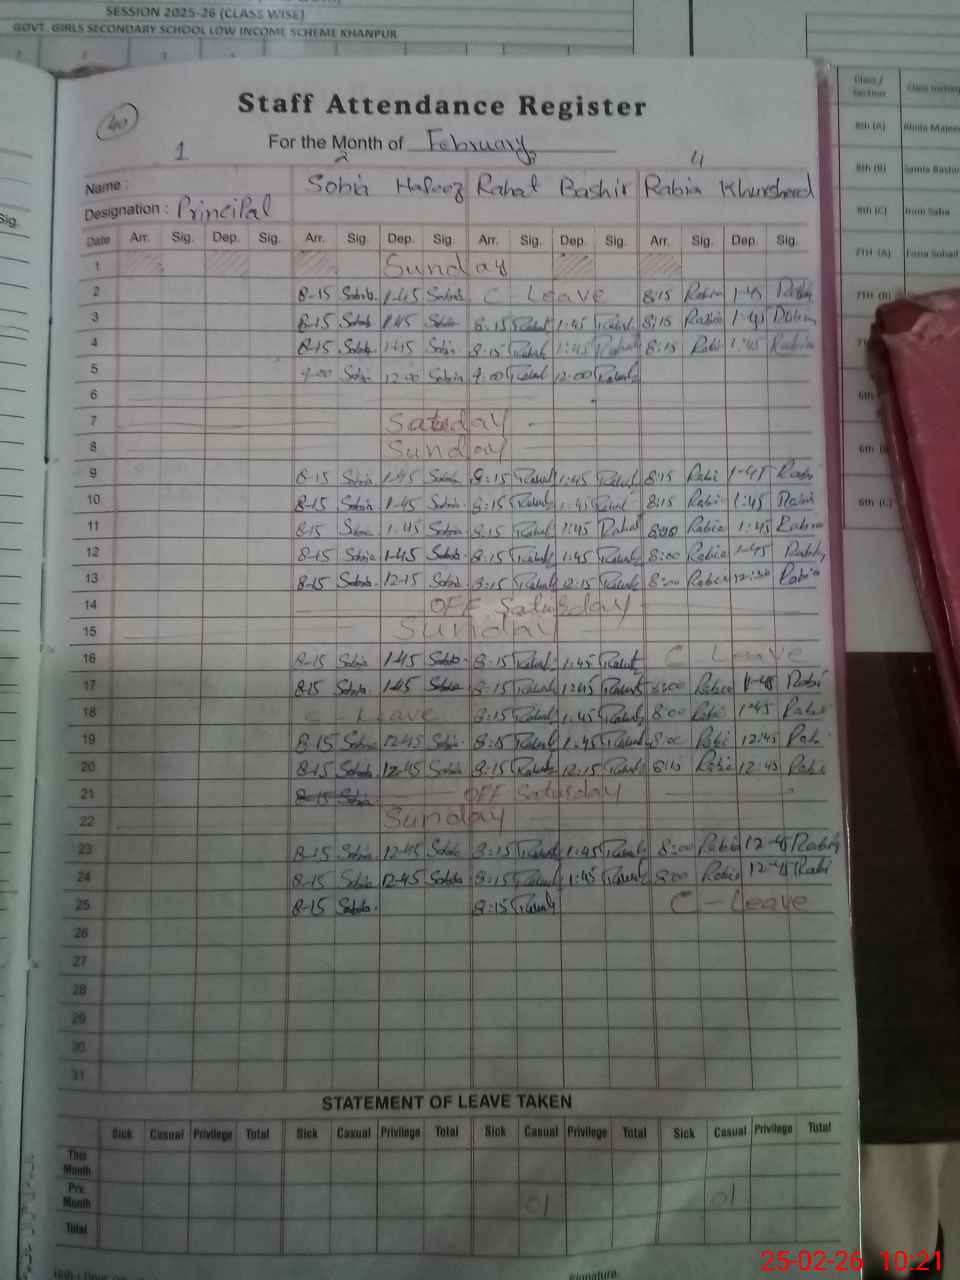 SESSION 2025-26 (CLASS WISE)
GOVT. GIRLS SECONDARY SCHOOL LOW INCOME SCHEME KHANPUR
40
Staff Attendance Register
For the Month of February
1 2 3 4
Name : Sobia Hafeez Rahat Bashir Rabia Khursheed
Designation : Principal
Date Arr. Sig. Dep. Sig. Arr. Sig. Dep. Sig. Arr. Sig. Dep. Sig. Arr. Sig. Dep. Sig.
1 Sunday
2 8-15 Sobia 1-45 Sobia C-Leave 8:15 Rabia 1-45 Rabia
3 8-15 Sobia 1-45 Sobia 8:15 Rahat 1:45 Rahat 8:15 Rabia 1-45 Rabia
4 8-15 Sobia 1-45 Sobia 8:15 Rahat 1:45 Rahat 8:15 Rabi 1:45 Rabia
5 9-00 Sobia 12-00 Sobia 9:00 Rahat 12:00 Rahat
6
7 Saturday
8 Sunday
9 8-15 Sobia 1-45 Sobia 8:15 Rahat 1:45 Rahat 8:15 Rabi 1-45 Rabi
10 8-15 Sobia 1-45 Sobia 8:15 Rahat 1:45 Rahat 8:15 Rabi 1:45 Rabia
11 8-15 Sobia 1-45 Sobia 8:15 Rahat 1:45 Rahat 8:00 Rabia 1:45 Rabia
12 8-15 Sobia 1-45 Sobia 8:15 Rahat 1:45 Rahat 8:00 Rabia 1-45 Rabia
13 8-15 Sobia 12-15 Sobia 8:15 Rahat 12:15 Rahat 8:00 Rabia 12:30 Rabia
14 OFF Saturday
15 Sunday
16 8-15 Sobia 1-45 Sobia 8:15 Rahat 1:45 Rahat C-Leave
17 8-15 Sobia 1-45 Sobia 8:15 Rahat 1:45 Rahat 8:00 Rabia 1-45 Rabi
18 C-Leave 8:15 Rahat 1:45 Rahat 8:00 Rabi 1-45 Rabi
19 8-15 Sobia 12-45 Sobia 8:15 Rahat 1:45 Rahat 8:00 Rabi 12:45 Rabi
20 8-15 Sobia 12-45 Sobia 8:15 Rahat 12:15 Rahat 8:15 Rabia 12:45 Rabi
21 8-15 Sobia OFF Saturday
22 Sunday
23 8-15 Sobia 12-45 Sobia 8:15 Rahat 1:45 Rahat 8:00 Rabia 12-45 Rabia
24 8-15 Sobia 12-45 Sobia 8:15 Rahat 1:45 Rahat 8:00 Rabia 12-45 Rabi
25 8-15 Sobia 8:15 Rahat C-Leave
26
27
28
29
30
31
STATEMENT OF LEAVE TAKEN
Sick Casual Privilege Total Sick Casual Privilege Total Sick Casual Privilege Total Sick Casual Privilege Total
This Month
Pre. Month 01 01
Total
Signature
Class / Section
8th (A)
8th (B)
8th (C)
7TH (A)
7TH (B)
6th
6th (C)
Sig.
25-02-26 10:21